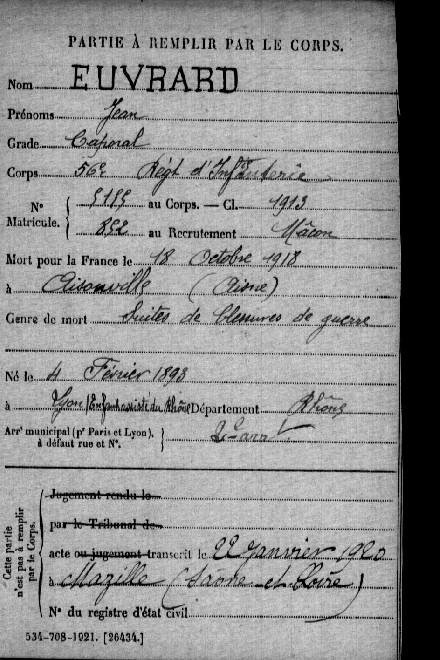 PARTIE À REMPLIR PAR LE CORPS.
Nom EUVRARD
Prénoms Jean
Grade Caporal
Corps 56e Régt d'Infanterie
N° Matricule. { 5155 au Corps. — Cl. 1913
852 au Recrutement Mâcon
Mort pour la France le 18 Octobre 1918
à Aisonville (Aisne)
Genre de mort Suites de blessures de guerre
Né le 4 Février 1893
à Lyon (Enfant assisté du Rhône) Département Rhône
Arrt municipal (pr Paris et Lyon), à défaut rue et N°. } 2e arrt
Cette partie n'est pas à remplir par le Corps.
Jugement rendu le
par le Tribunal de
acte ou jugement transcrit le 22 Janvier 1920
à Mazille (Saône et Loire)
N° du registre d'état civil
534-708-1921. [26434.]